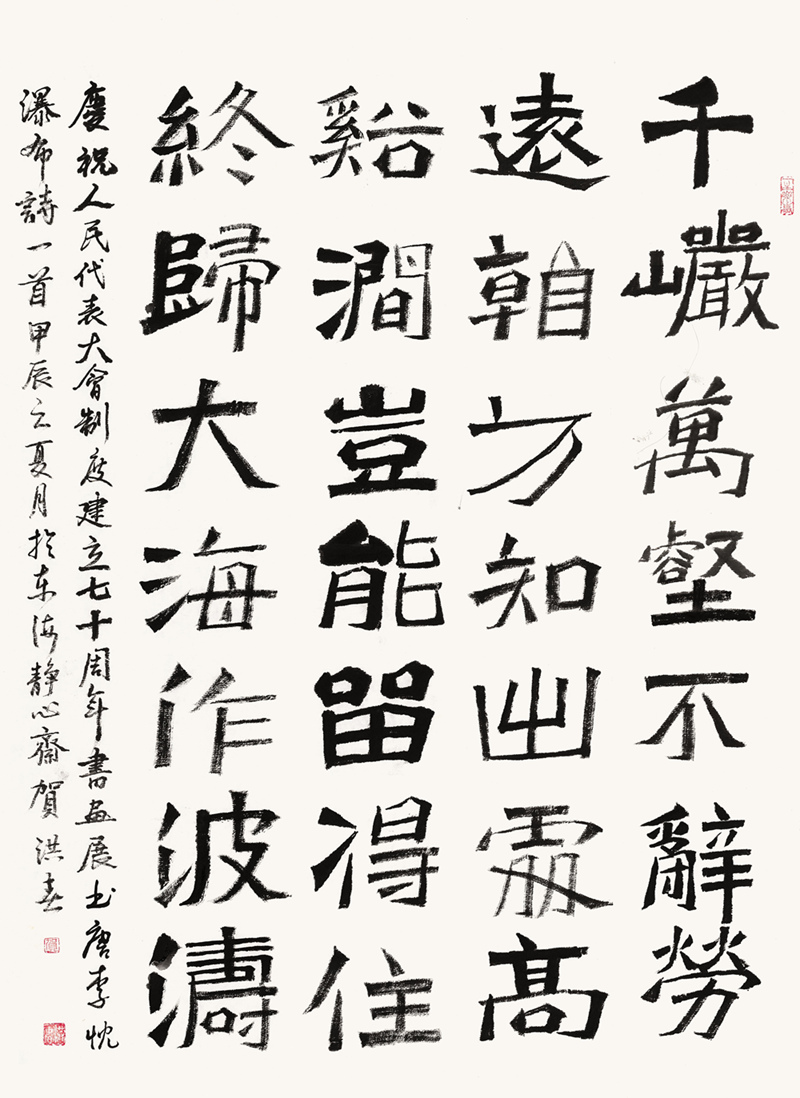 千巗萬壑不辭勞
遠方知出處高
谿澗豈能留得住
終歸大海作波濤
慶祝人民代表大會制度建立七十周年書畫展书唐李忱
瀑布詩一首甲辰之夏月於东海静心齋賀洪春